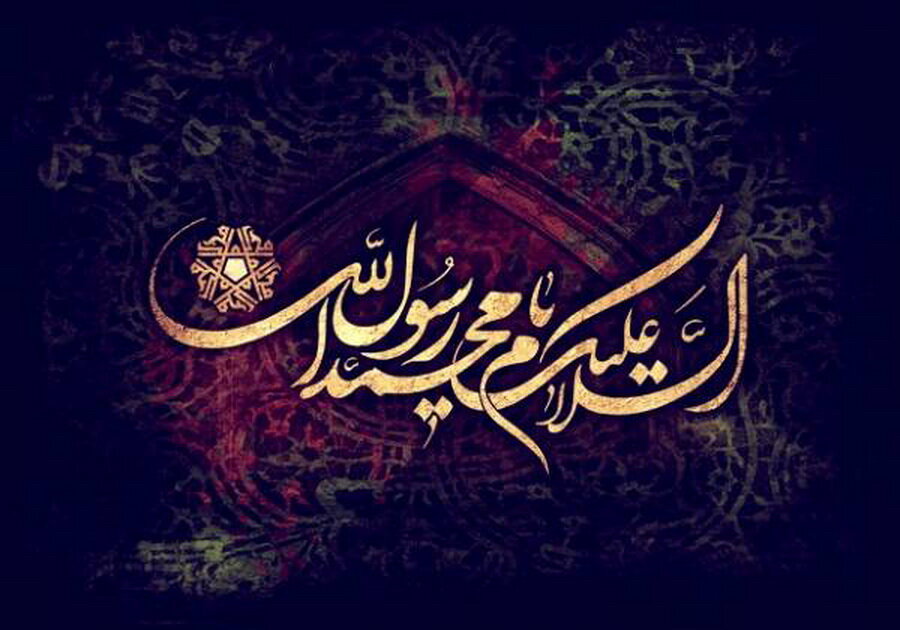 السلام علیک یا محمد رسول الله